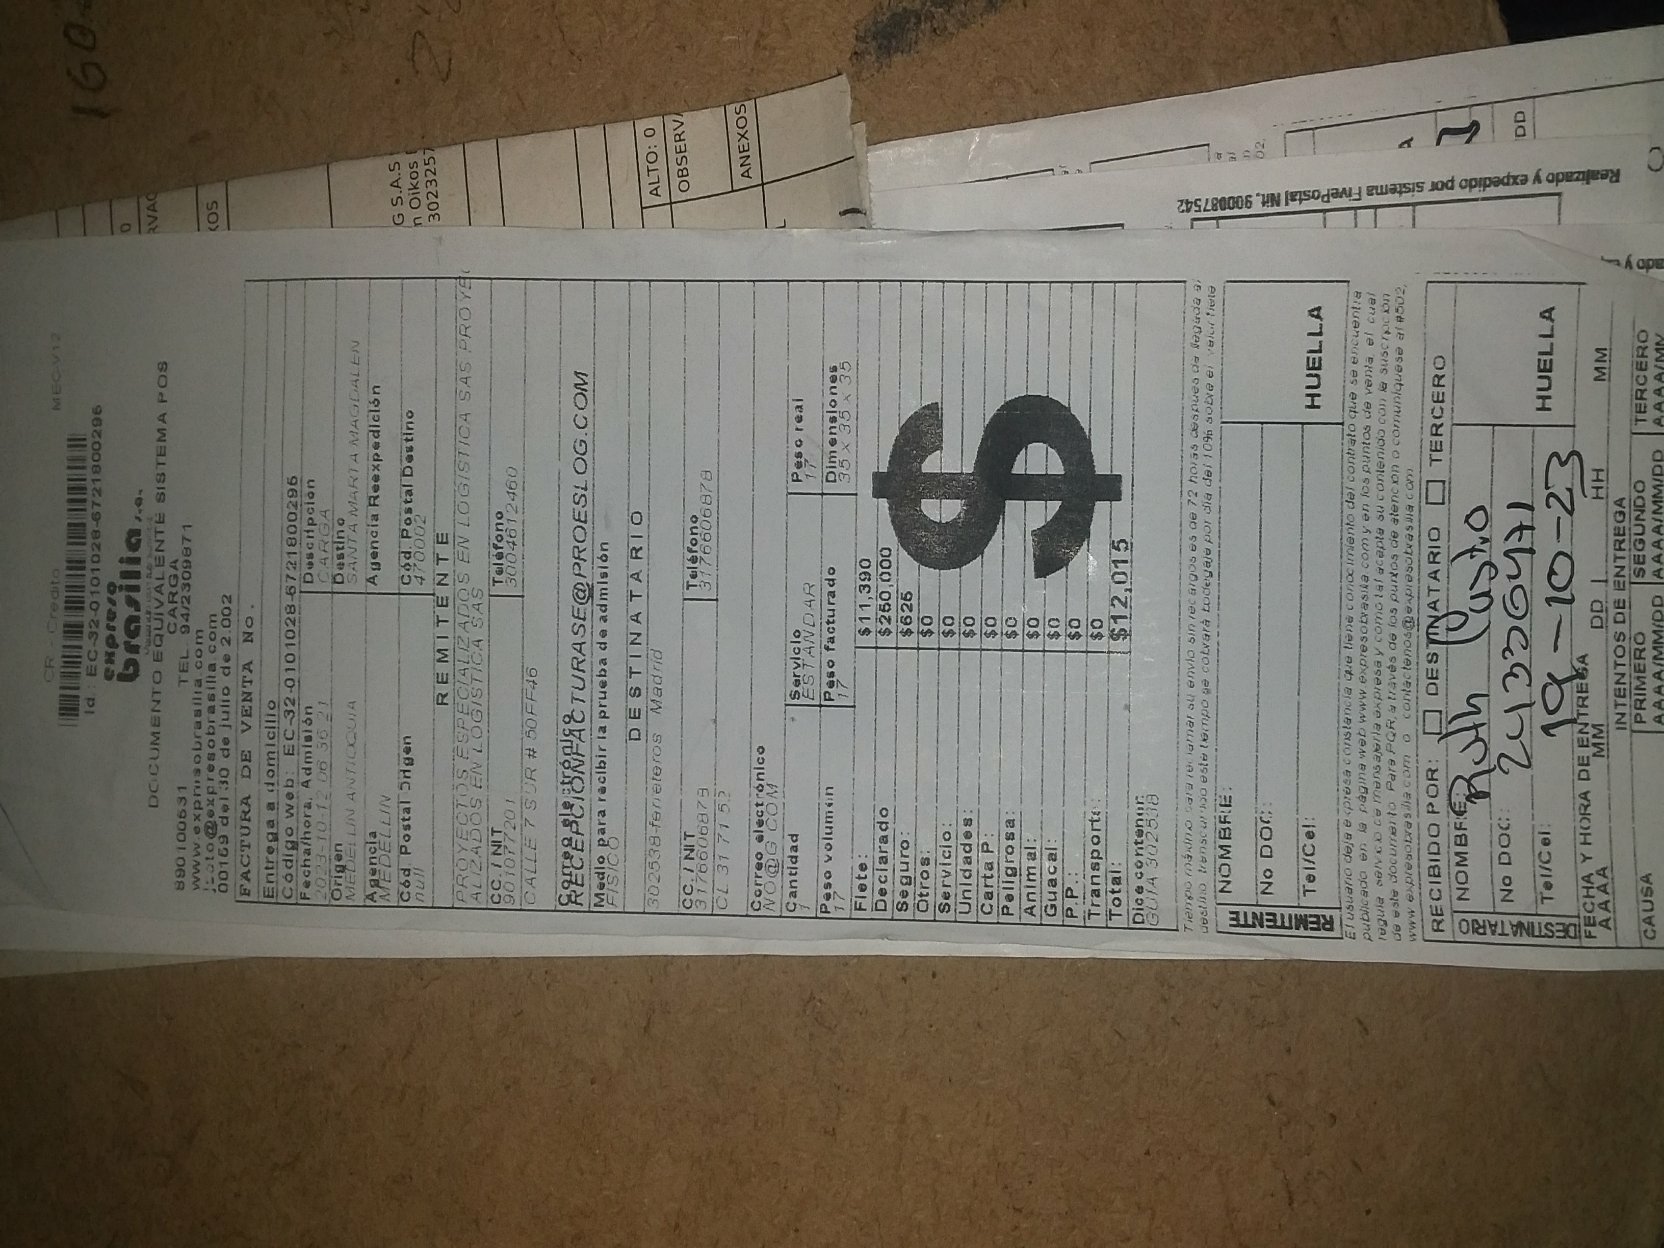 CR - Credito MECV12
Id.: EC-32-0101028-6721800296
expreso
brasilia s.a.
DOCUMENTO EQUIVALENTE SISTEMA POS
CARGA
890100531 TEL. 94/2309871
www.expresobrasilia.com
00169 del 30 de julio de 2.002
FACTURA DE VENTA No.
Entrega a domicilio
Código web: EC-32-0101028-6721800296
Fecha/hora. Admisión Descripción
2023-10-12 06:36:21 CARGA
Origen Destino
MEDELLIN ANTIOQUIA SANTA MARTA MAGDALEN
Agencia Agencia Reexpedición
MEDELLIN
Cód. Postal Origen Cód. Postal Destino
null 470002
REMITENTE
PROYECTOS ESPECIALIZADOS EN LOGISTICA SAS PROYE
ALIZADOS EN LOGISTICA SAS
CC. / NIT Teléfono
901077201 3004612460
CALLE 7 SUR # 50FF46
Correo electrónico
RECEPCIONFACTURASE@PROESLOG.COM
Medio para recibir la prueba de admisión
FISICO
DESTINATARIO
302538-ferreteros Madrid
CC. / NIT Teléfono
3176606878 3176606878
CL 31 71 52
Correo electrónico
NO@G.COM
Cantidad Servicio Peso real
1 ESTANDAR 17
Peso volumen Peso facturado Dimensiones
17 17 35 x 35 x 35
Flete: $11,390
Declarado $250,000
Seguro: $625
Otros: $0
Servicio: $0
Unidades: $0
Carta P: $0
Peligrosa: $0
Animal: $0
Guacal: $0
P.P.: $0
Transporte: $0
Total: $12,015
$
Dice contener:
GUIA 302538
Tiempo máximo para reclamar su envío sin recargos es de 72 horas después de llegada al
destino, transcurrido este tiempo se cobrará bodegaje por día del 10% sobre el valor flete
REMITENTE
NOMBRE:
No DOC:
Tel/Cel:
HUELLA
El usuario deja expresa constancia que tiene conocimiento del contrato que se encuentra
publicado en la página web www.expresobrasilia.com y en los puntos de venta, el cual
regula servicio de mensajería expresa y como tal acepta su contenido con la suscripción
de este documento. Para PQR, a través de los puntos de atención o comuníquese al #502,
www.expresobrasilia.com o contactenos@expresobrasilia.com
RECIBIDO POR: DESTINATARIO TERCERO
DESTINATARIO
NOMBRE: Ruth Castro
No DOC:
Tel/Cel: 19-10-23
HUELLA
FECHA Y HORA DE ENTREGA
AAAA MM DD HH MM
INTENTOS DE ENTREGA
CAUSA PRIMERO SEGUNDO TERCERO
AAAA/MM/DD AAAA/MM/DD AAAA/MM
G S.A.S
n Oikos
3023257
ALTO: 0
OBSERVA
ANEXOS
Realizado y expedido por sistema FivePostal Nit. 900087542
DD